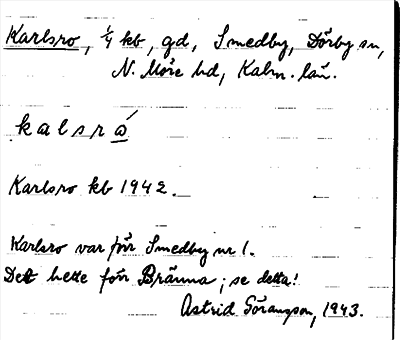 Karlsro, 1/4 kb, gd, Smedby, Dörby sn,
N. Möre hd, Kalm. län.
kalsrá
Karlsro kb 1942.
Karlsro var förr Smedby nr 1.
Det hette förr Bränna; se detta!
Astrid Göransson, 1943.